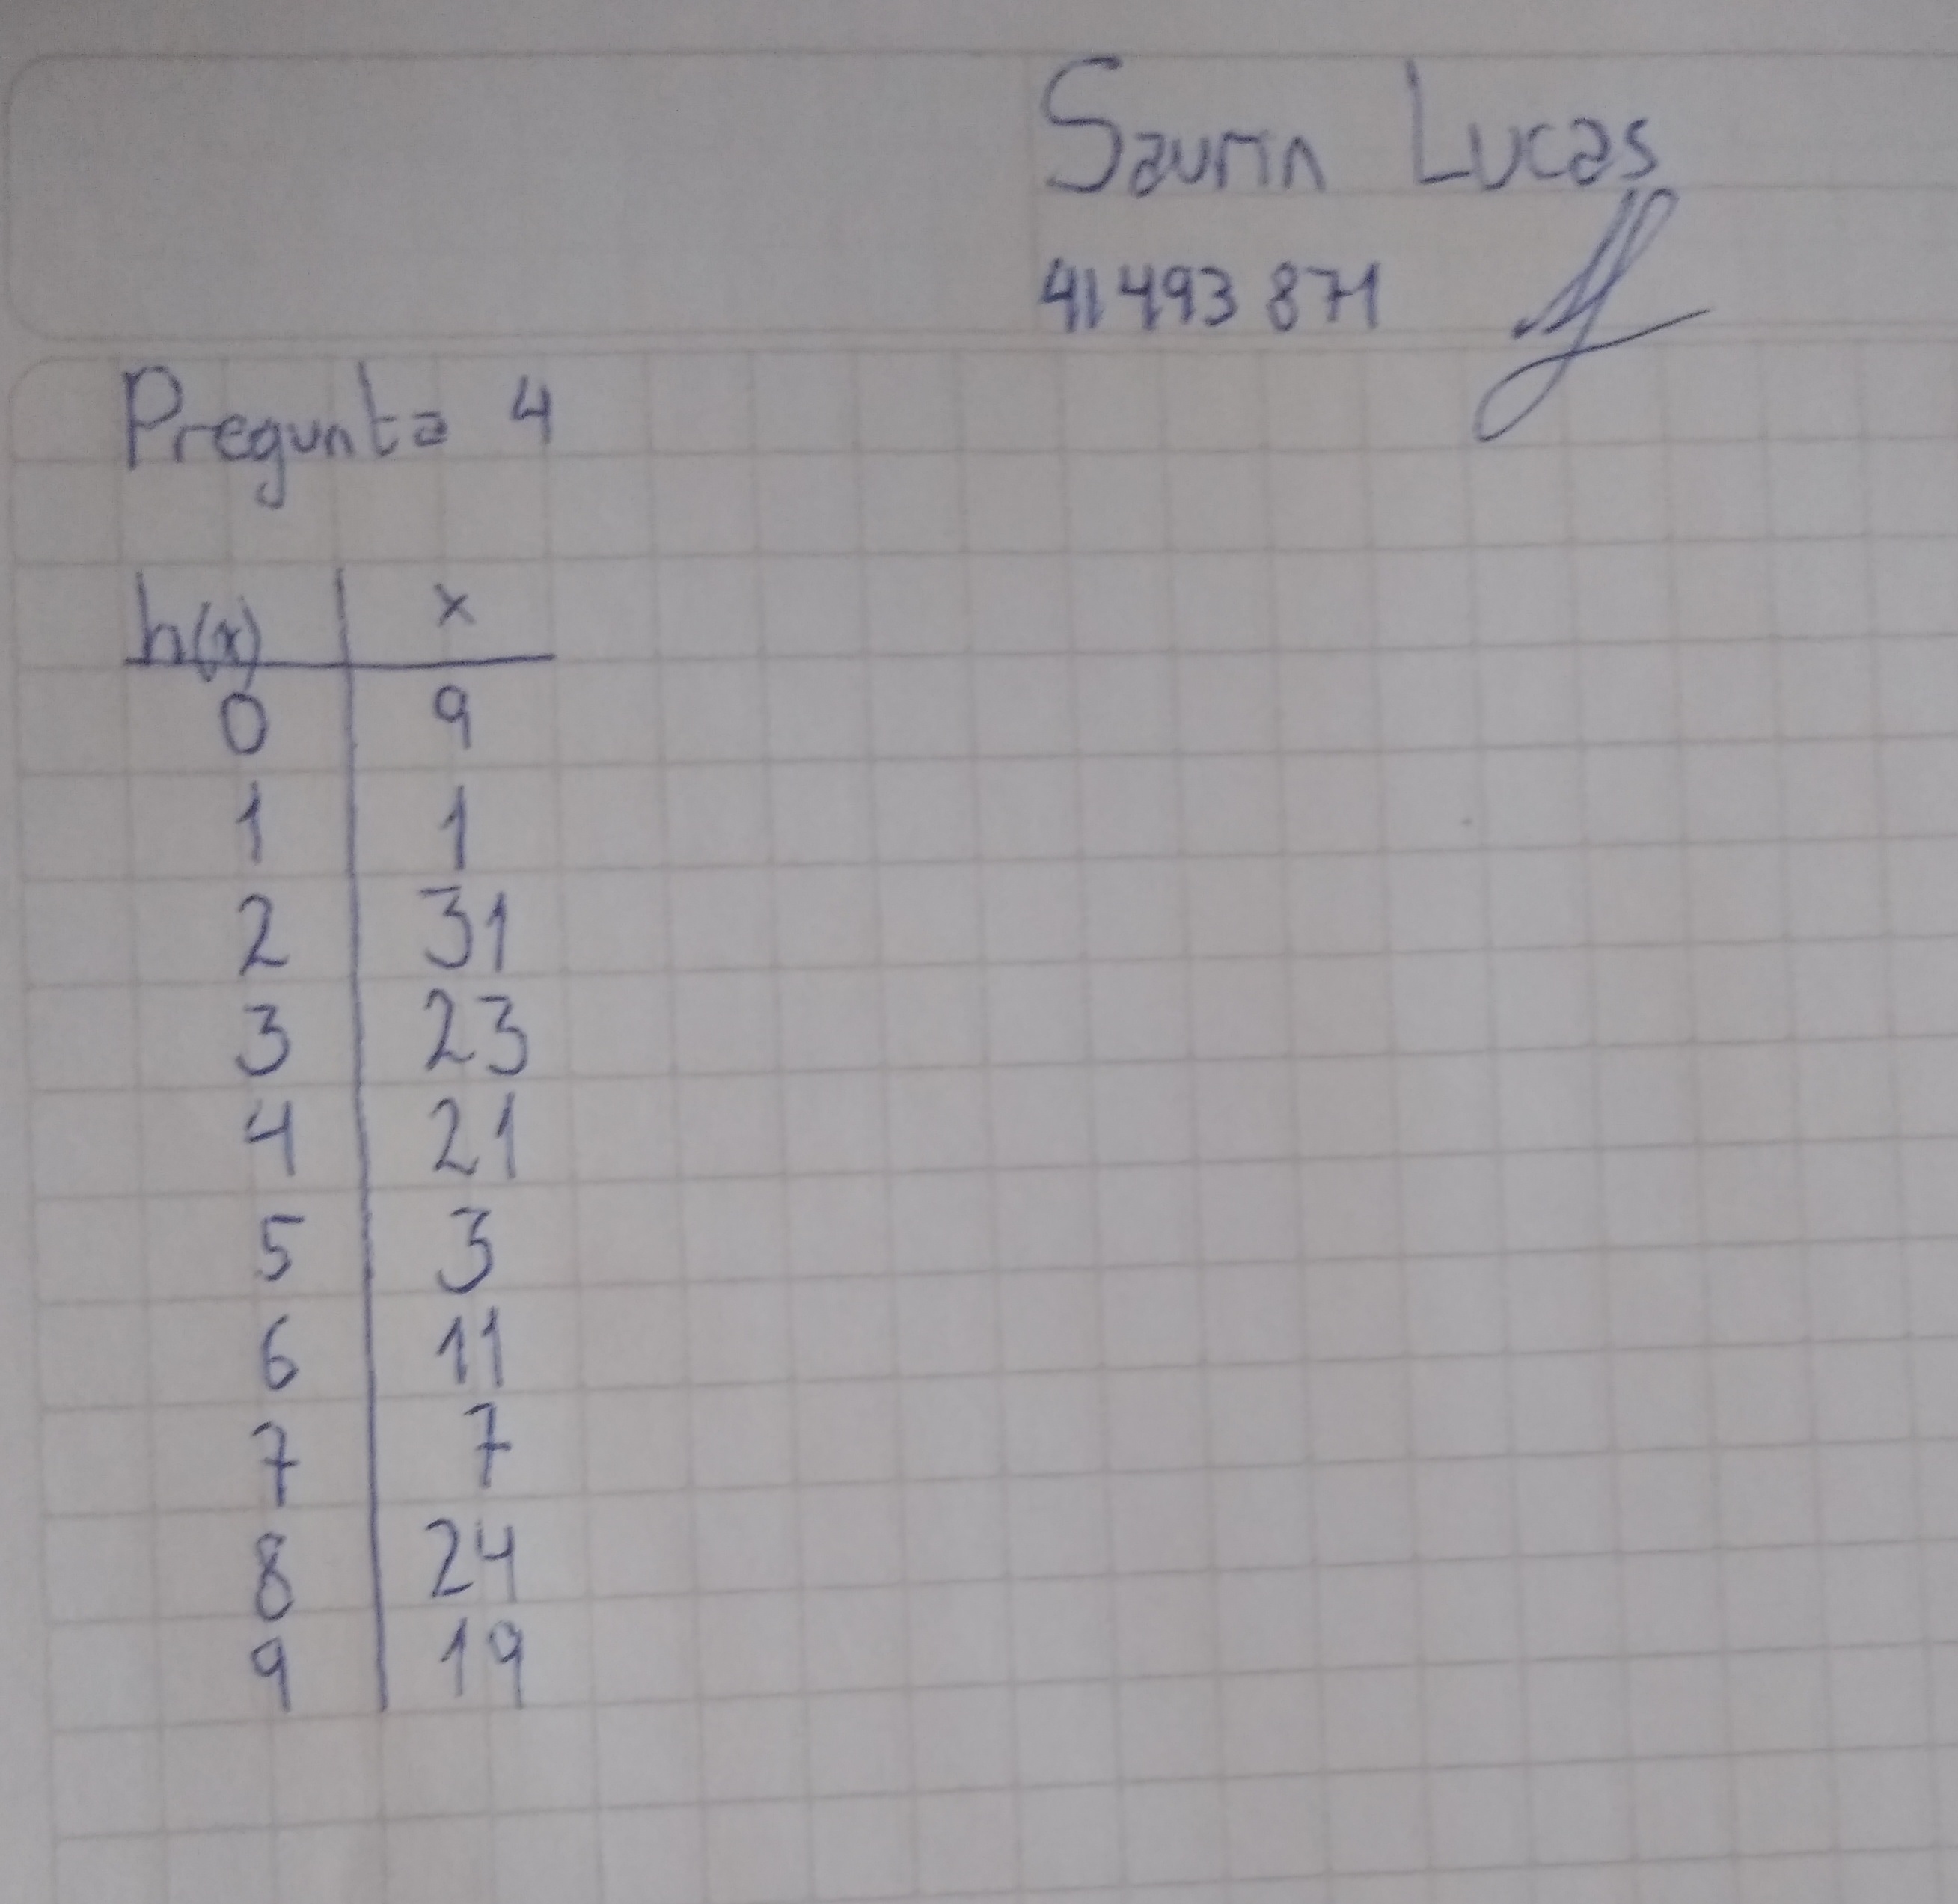 Saurin Lucas
41 493 871
Pregunta 4
h(x) x
0 9
1 1
2 31
3 23
4 21
5 3
6 11
7 7
8 24
9 19